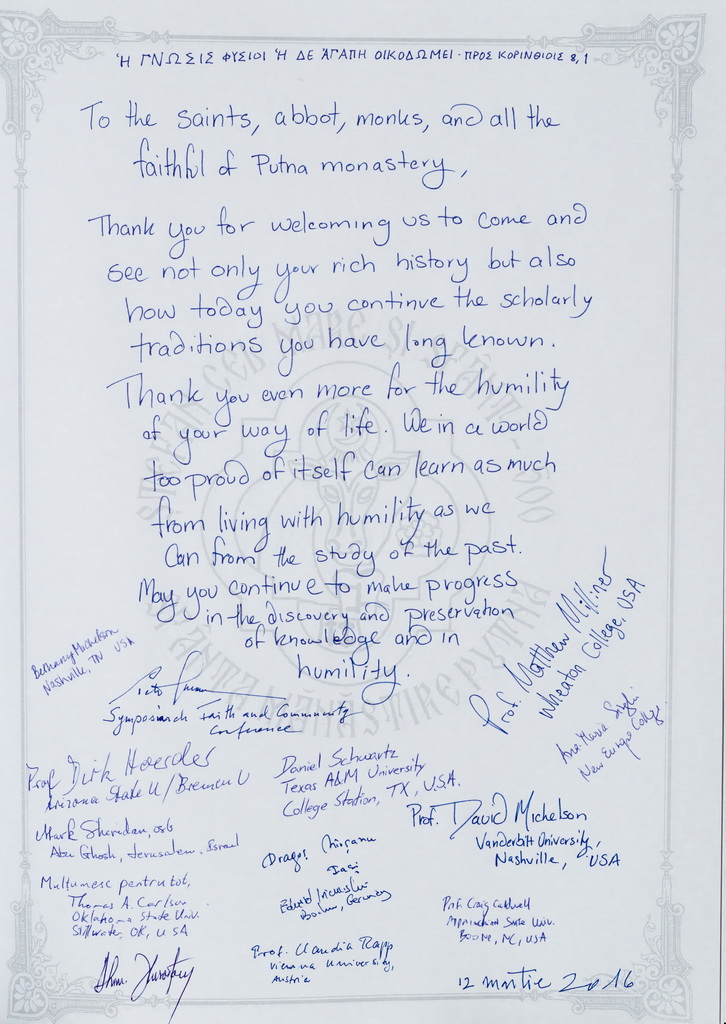 Ἡ ΓΝΩΣΙΣ ΦΥΣΙΟΙ Ἡ ΔΕ ἈΓΑΠΗ ΟΙΚΟΔΩΜΕΙ - ΠΡΟΣ ΚΟΡΙΝΘΙΟΙΣ 8,1
To the saints, abbot, monks, and all the
faithful of Putna monastery,
Thank you for welcoming us to come and
see not only your rich history but also
how today you continue the scholarly
traditions you have long known.
Thank you even more for the humility
of your way of life. We in a world
too proud of itself can learn as much
from living with humility as we
can from the study of the past.
May you continue to make progress
in the discovery and preservation
of knowledge and in
humility.
Bethany Michelson
Nashville, TN USA
Symposiarch Faith and Community
Conference
Prof. Matthew Milliner
Wheaton College, USA
Ana-Maria
New Europe College
Prof Dirk Hoerder
Arizona State U/Bremen U
Daniel Schwartz
Texas A&M University
College Station, TX, U.S.A.
Prof. David Michelson
Vanderbilt University,
Nashville, USA
Mark Sheridan, osb
Abu Ghosh, Jerusalem, Israel
Dragoș
Iași
Multumesc pentru tot,
Thomas A. Carlson
Oklahoma State Univ.
Stillwater, OK, USA
Germany
Prof. Craig Caldwell
Appalachian State Univ.
Boone, NC, USA
Prof. Claudia Rapp
Vienna University,
Austria
12 martie 2016
ȘTEFAN CEL MARE ȘI SFÂNT - 500
SFÂNTA MĂNĂSTIRE PUTNA